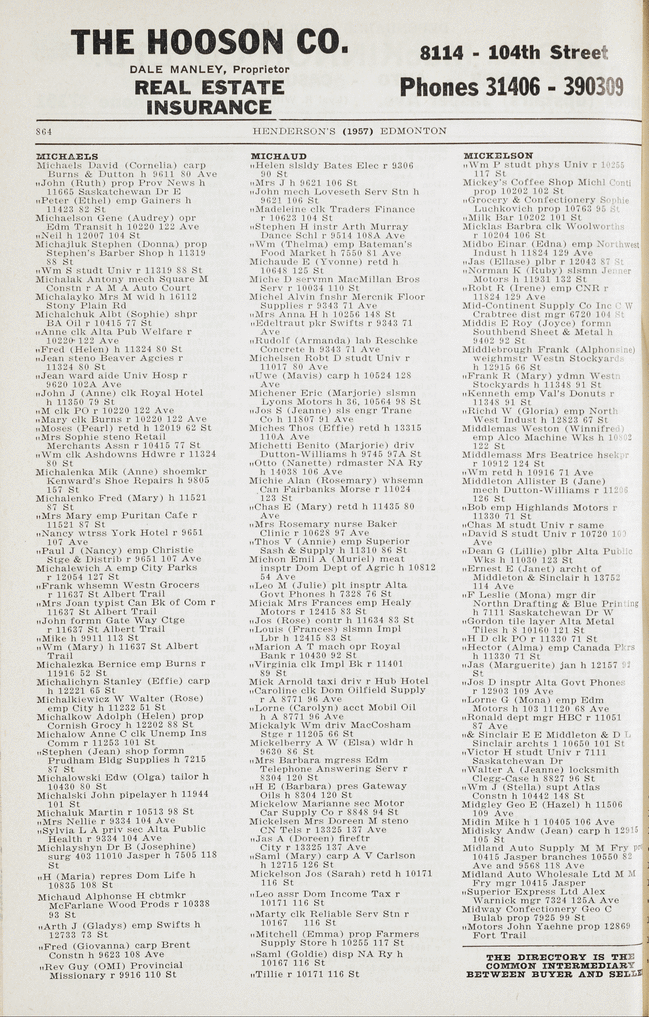 THE HOOSON CO.
DALE MANLEY, Proprietor
REAL ESTATE
INSURANCE
8114 - 104th Street
Phones 31406 - 390309
864
HENDERSON'S (1957) EDMONTON
MICHAELS
Michaels David (Cornelia) carp
Burns & Dutton h 9611 80 Ave
„John (Ruth) prop Prov News h
11665 Saskatchewan Dr E
„Peter (Ethel) emp Gainers h
11423 82 St
Michaelson Gene (Audrey) opr
Edm Transit h 10220 122 Ave
„Neil h 12007 104 St
Michajluk Stephen (Donna) prop
Stephen's Barber Shop h 11319
88 St
„Wm S studt Univ r 11319 88 St
Michalak Antony mech Square M
Constn r A M A Auto Court
Michalayko Mrs M wid h 16112
Stony Plain Rd
Michalchuk Albt (Sophie) shpr
BA Oil r 10415 77 St
„Anne clk Alta Pub Welfare r
10220 122 Ave
„Fred (Helen) h 11324 80 St
„Jean steno Beaver Agcies r
11324 80 St
„Jean ward aide Univ Hosp r
9620 102A Ave
„John J (Anne) clk Royal Hotel
h 11350 79 St
„M clk PO r 10220 122 Ave
„Mary clk Burns r 10220 122 Ave
„Moses (Pearl) retd h 12019 62 St
„Mrs Sophie steno Retail
Merchants Assn r 10415 77 St
„Wm clk Ashdowns Hdwre r 11324
80 St
Michalenka Mik (Anne) shoemkr
Kenward's Shoe Repairs h 9805
157 St
Michalenko Fred (Mary) h 11521
87 St
„Mrs Mary emp Puritan Cafe r
11521 87 St
„Nancy wtrss York Hotel r 9651
107 Ave
„Paul J (Nancy) emp Christie
Stge & Distrib r 9651 107 Ave
Michalewich A emp City Parks
r 12054 127 St
„Frank whsemn Westn Grocers
r 11637 St Albert Trail
„Mrs Joan typist Can Bk of Com r
11637 St Albert Trail
„John formn Gate Way Ctge
r 11637 St Albert Trail
„Mike h 9911 113 St
„Wm (Mary) h 11637 St Albert
Trail
Michalezka Bernice emp Burns r
11916 52 St
Michalichyn Stanley (Effie) carp
h 12221 65 St
Michalkiewicz W Walter (Rose)
emp City h 11232 51 St
Michalkow Adolph (Helen) prop
Cornish Grocy h 12202 88 St
Michalow Anne C clk Unemp Ins
Comm r 11253 101 St
„Stephen (Jean) shop formn
Prudham Bldg Supplies h 7215
87 St
Michalowski Edw (Olga) tailor h
10430 80 St
Michalski John pipelayer h 11944
101 St
Michaluk Martin r 10513 98 St
„Mrs Nellie r 9334 104 Ave
„Sylvia L A priv sec Alta Public
Health r 9334 104 Ave
Michlayshyn Dr B (Josephine)
surg 403 11010 Jasper h 7505 118
St
„H (Maria) repres Dom Life h
10835 108 St
Michaud Alphonse H cbtmkr
McFarlane Wood Prods r 10338
93 St
„Arth J (Gladys) emp Swifts h
12733 73 St
„Fred (Giovanna) carp Brent
Constn h 9623 108 Ave
„Rev Guy (OMI) Provincial
Missionary r 9916 110 St
MICHAUD
„Helen slsldy Bates Elec r 9306
90 St
„Mrs J h 9621 106 St
„John mech Loveseth Serv Stn h
9621 106 St
„Madeleine clk Traders Finance
r 10623 104 St
„Stephen H instr Arth Murray
Dance Schl r 9514 108A Ave
„Wm (Thelma) emp Bateman's
Food Market h 7550 81 Ave
Michaude E (Yvonne) retd h
10648 125 St
Miche D servmn MacMillan Bros
Serv r 10034 110 St
Michel Alvin fnshr Mercnik Floor
Supplies r 9343 71 Ave
„Mrs Anna H h 10256 148 St
„Edeltraut pkr Swifts r 9343 71
Ave
„Rudolf (Armanda) lab Reschke
Concrete h 9343 71 Ave
Michelsen Robt D studt Univ r
11017 80 Ave
„Uwe (Mavis) carp h 10524 128
Ave
Michener Eric (Marjorie) slsmn
Lyons Motors h 36, 10564 98 St
„Jos S (Jeanne) sls engr Trane
Co h 11807 91 Ave
Miches Thos (Effie) retd h 13315
110A Ave
Michetti Benito (Marjorie) driv
Dutton-Williams h 9745 97A St
„Otto (Nanette) rdmaster NA Ry
h 14038 106 Ave
Michie Alan (Rosemary) whsemn
Can Fairbanks Morse r 11024
123 St
„Chas E (Mary) retd h 11435 80
Ave
„Mrs Rosemary nurse Baker
Clinic r 10628 97 Ave
„Thos V (Annie) emp Superior
Sash & Supply h 11310 86 St
Michon Emil A (Muriel) meat
insptr Dom Dept of Agric h 10812
54 Ave
„Leo M (Julie) plt insptr Alta
Govt Phones h 7328 76 St
Miciak Mrs Frances emp Healy
Motors r 12415 83 St
„Jos (Rose) contr h 11634 83 St
„Louis (Frances) slsmn Impl
Lbr h 12415 83 St
„Marion A T mach opr Royal
Bank r 10430 92 St
„Virginia clk Impl Bk r 11401
89 St
Mick Arnold taxi driv r Hub Hotel
„Caroline clk Dom Oilfield Supply
r A 8771 96 Ave
„Lorne (Carolyn) acct Mobil Oil
h A 8771 96 Ave
Mickalyk Wm driv MacCosham
Stge r 11205 66 St
Mickelberry A W (Elsa) wldr h
9630 86 St
„Mrs Barbara mgress Edm
Telephone Answering Serv r
8304 120 St
„H E (Barbara) pres Gateway
Oils h 8304 120 St
Mickelow Marianne sec Motor
Car Supply Co r 8848 94 St
Mickelsen Mrs Doreen M steno
CN Tels r 13325 137 Ave
„Jas A (Doreen) fireftr
City r 13325 137 Ave
„Saml (Mary) carp A V Carlson
h 12715 126 St
Mickelson Jos (Sarah) retd h 10171
116 St
„Leo assr Dom Income Tax r
10171 116 St
„Marty clk Reliable Serv Stn r
10167 116 St
„Mitchell (Emma) prop Farmers
Supply Store h 10255 117 St
„Saml (Goldie) disp NA Ry h
10167 116 St
„Tillie r 10171 116 St
MICKELSON
„Wm P studt phys Univ r 10255
117 St
Mickey's Coffee Shop Michl Conti
prop 10202 102 St
„Grocery & Confectionery Sophie
Luchkovich prop 10763 95 St
„Milk Bar 10202 101 St
Micklas Barbra clk Woolworths
r 10204 106 St
Midbo Einar (Edna) emp Northwest
Indust h 11824 129 Ave
„Jas (Ellase) plbr r 12043 87 St
„Norman K (Ruby) slsmn Jenner
Motors h 11931 132 St
„Robt R (Irene) emp CNR r
11824 129 Ave
Mid-Continent Supply Co Inc C W
Crabtree dist mgr 6720 104 St
Middis E Roy (Joyce) formn
Southbend Sheet & Metal h
9402 92 St
Middlebrough Frank (Alphonsine)
weighmstr Westn Stockyards
h 12915 66 St
„Frank R (Mary) ydmn Westn
Stockyards h 11348 91 St
„Kenneth emp Val's Donuts r
11348 91 St
„Richd W (Gloria) emp North
West Indust h 12823 67 St
Middlemas Weston (Winnifred)
emp Alco Machine Wks h 10802
122 St
Middlemass Mrs Beatrice hsekpr
r 10912 124 St
„Wm retd h 10916 71 Ave
Middleton Allister B (Jane)
mech Dutton-Williams r 11236
126 St
„Bob emp Highlands Motors r
11330 71 St
„Chas M studt Univ r same
„David S studt Univ r 10720
Ave
„Dean G (Lillie) plbr Alta Public
Wks h 11030 123 St
„Ernest E (Janet) archt of
Middleton & Sinclair h 13752
114 Ave
„F Leslie (Mona) mgr dir
Northn Drafting & Blue Printing
h 7111 Saskatchewan Dr W
„Gordon tile layer Alta Metal
Tiles h 8 10160 121 St
„H D clk PO r 11330 71 St
„Hector (Alma) emp Canada Pkrs
h 11330 71 St
„Jas (Marguerite) jan h 12157
St
„Jos D insptr Alta Govt Phones
r 12903 109 Ave
„Lorne G (Mona) emp Edm
Motors h 103 11120 68 Ave
„Ronald dept mgr HBC r 11051
87 Ave
„& Sinclair E E Middleton & D L
Sinclair archts 1 10650 101 St
„Victor H studt Univ r 7111
Saskatchewan Dr
„Walter A (Jeanne) locksmith
Clegg-Case h 8827 96 St
„Wm J (Stella) supt Atlas
Constn h 10442 148 St
Midgley Geo E (Hazel) h 11506
109 Ave
Midin Mike h 1 10405 106 Ave
Midisky Andw (Jean) carp h 12915
105 St
Midland Auto Supply M M Fry
10415 Jasper branches 10550 82
Ave and 9568 118 Ave
Midland Auto Wholesale Ltd M M
Fry mgr 10415 Jasper
„Superior Express Ltd Alex
Warnick mgr 7324 125A Ave
Midway Confectionery Geo C
Bulab prop 7925 99 St
„Motors John Yaehne prop 12869
Fort Trail
THE DIRECTORY IS THE
COMMON INTERMEDIARY
BETWEEN BUYER AND SELLE